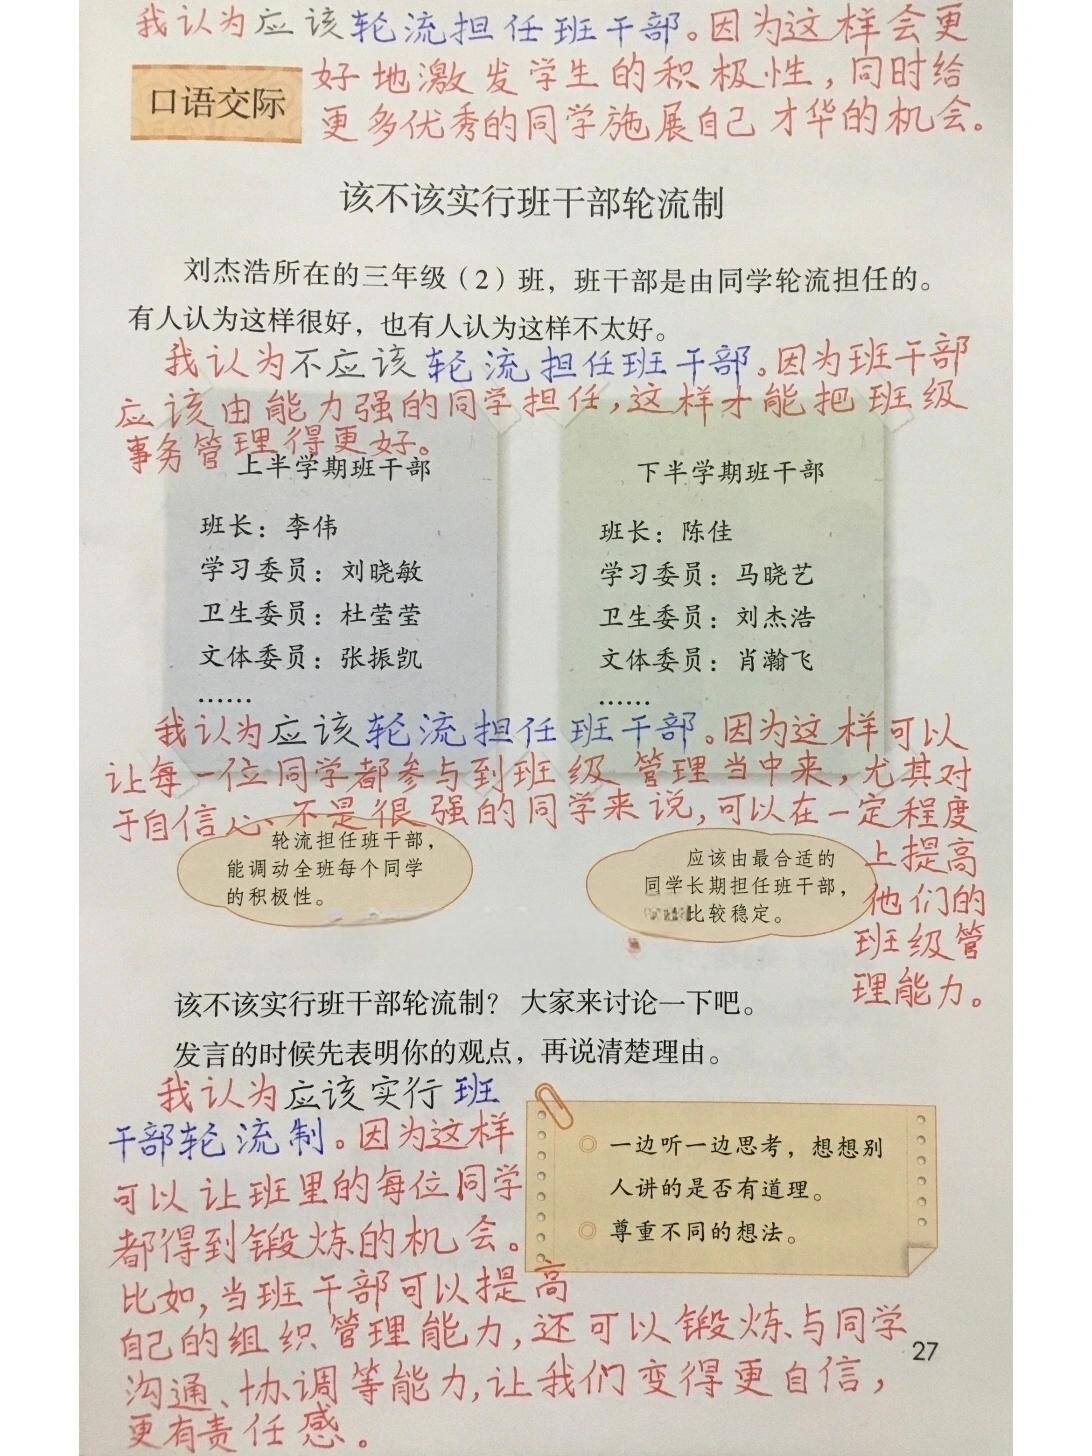 我认为应该轮流担任班干部。因为这样会更
好地激发学生的积极性，同时给
口语交际
更多优秀的同学施展自己才华的机会。
该不该实行班干部轮流制
刘杰浩所在的三年级（2）班，班干部是由同学轮流担任的。
有人认为这样很好，也有人认为这样不太好。
我认为不应该轮流担任班干部。因为班干部
应该由能力强的同学担任，这样才能把班级
事务管理得更好。
上半学期班干部
班长：李伟
学习委员：刘晓敏
卫生委员：杜莹莹
文体委员：张振凯
……
下半学期班干部
班长：陈佳
学习委员：马晓艺
卫生委员：刘杰浩
文体委员：肖瀚飞
……
我认为应该轮流担任班干部。因为这样可以
让每一位同学都参与到班级管理当中来，尤其对
于自信心不是很强的同学来说，可以在一定程度
上提高
他们的
班级管
理能力。
轮流担任班干部，
能调动全班每个同学
的积极性。
应该由最合适的
同学长期担任班干部，
比较稳定。
该不该实行班干部轮流制？大家来讨论一下吧。
发言的时候先表明你的观点，再说清楚理由。
我认为应该实行班
干部轮流制。因为这样
可以让班里的每位同学
都得到锻炼的机会。
比如，当班干部可以提高
自己的组织管理能力，还可以锻炼与同学
沟通、协调等能力，让我们变得更自信，
更有责任感。
一边听一边思考，想想别
人讲的是否有道理。
尊重不同的想法。
27